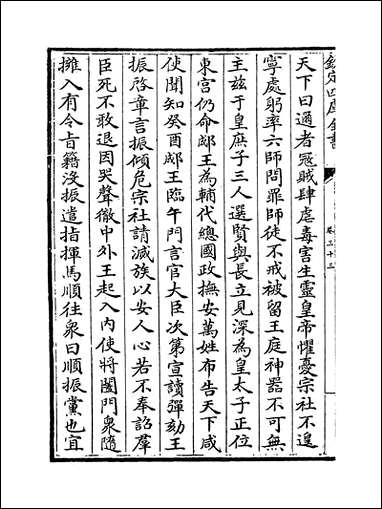 欽定四庫全書
卷三十三
天下曰邇者冦賊肆虐毒害生靈皇帝懼憂宗社不遑
寧處躬率六師問罪師徒不戒被留王庭神器不可無
主兹于皇庶子三人選賢與長立見深為皇太子正位
東宫仍命郕王為輔代總國政撫安萬姓布告天下咸
使聞知癸酉郕王臨午門言官大臣次第宣讀彈劾王
振啓章言振傾危宗社請滅族以安人心若不奉詔羣
臣死不敢退因哭聲徹中外王起入内使將闔門衆隨
擁入有令旨籍没振遣指揮馬順往衆曰順振黨也宜